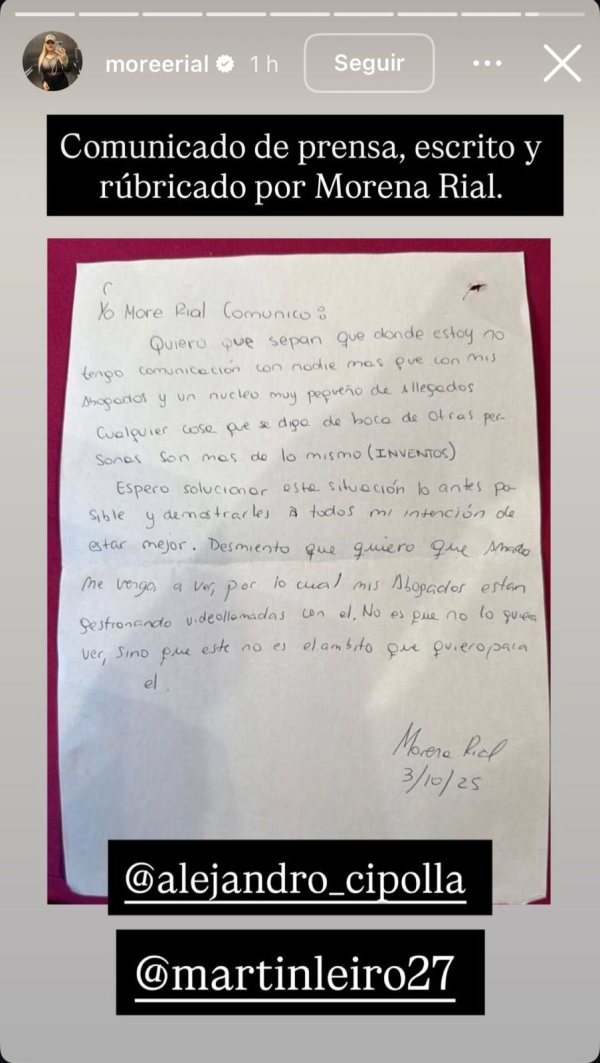 moreerial 1 h Seguir
Comunicado de prensa, escrito y
rúbricado por Morena Rial.
Yo More Rial Comunico:
Quiero que sepan que donde estoy no
tengo comunicación con nadie mas que con mis
Abogados y un nucleo muy pequeño de allegados
Cualquier cosa que se diga de boca de otras per-
sonas son mas de lo mismo (INVENTOS)
Espero solucionar esta situación lo antes po-
sible y demostrarles a todos mi intención de
estar mejor. Desmiento que quiero que Amado
me venga a ver, por lo cual mis Abogados estan
gestionando videollamadas con el. No es que no lo quiera
ver, sino que este no es el ambito que quiero para
el.
Morena Rial
3/10/25
@alejandro_cipolla
@martinleiro27